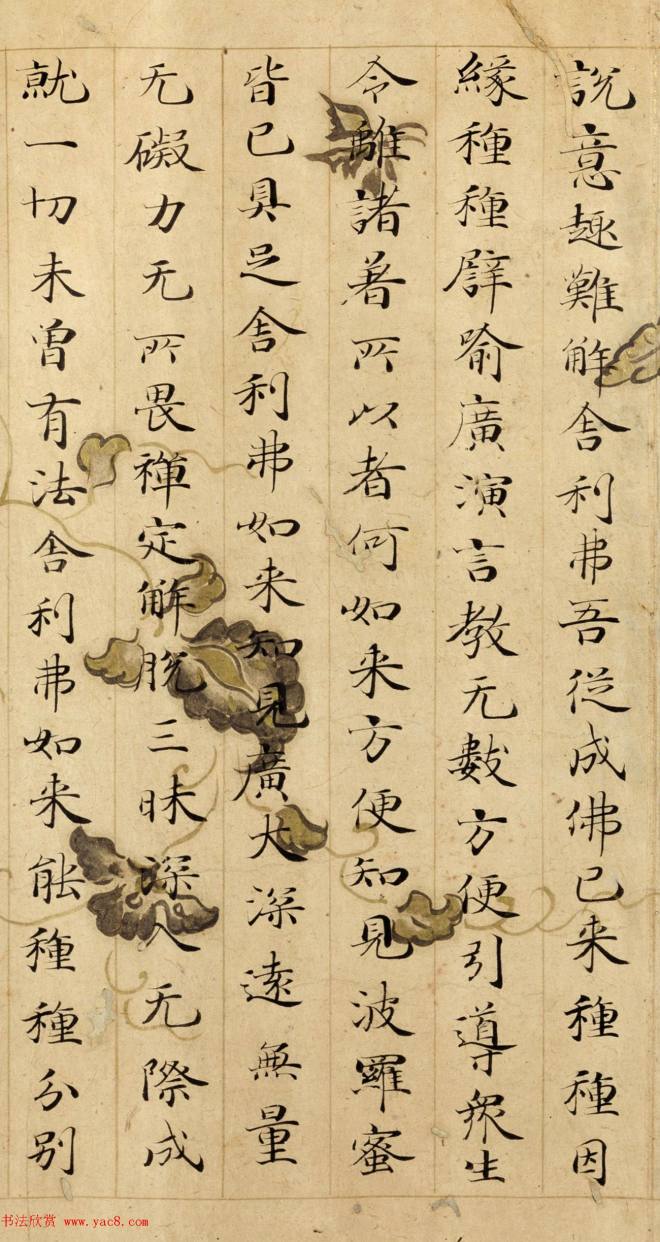 說意趣難解舍利弗吾從成佛已来種種因
緣種種譬喻廣演言教无數方便引導衆生
令離諸著所以者何如来方便知見波羅蜜
皆已具足舍利弗如来知見廣大深遠無量
无礙力无所畏禪定解脫三昧深入无際成
就一切未曾有法舍利弗如来能種種分別
书法欣赏 www.yac8.com